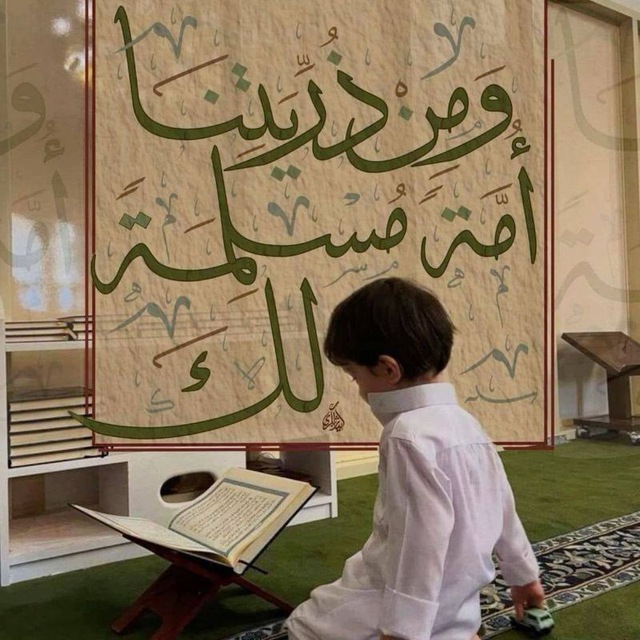 وَمِن ذُرِّيَّتِنَا
أُمَّةً مُسلِمَةً
لَكَ